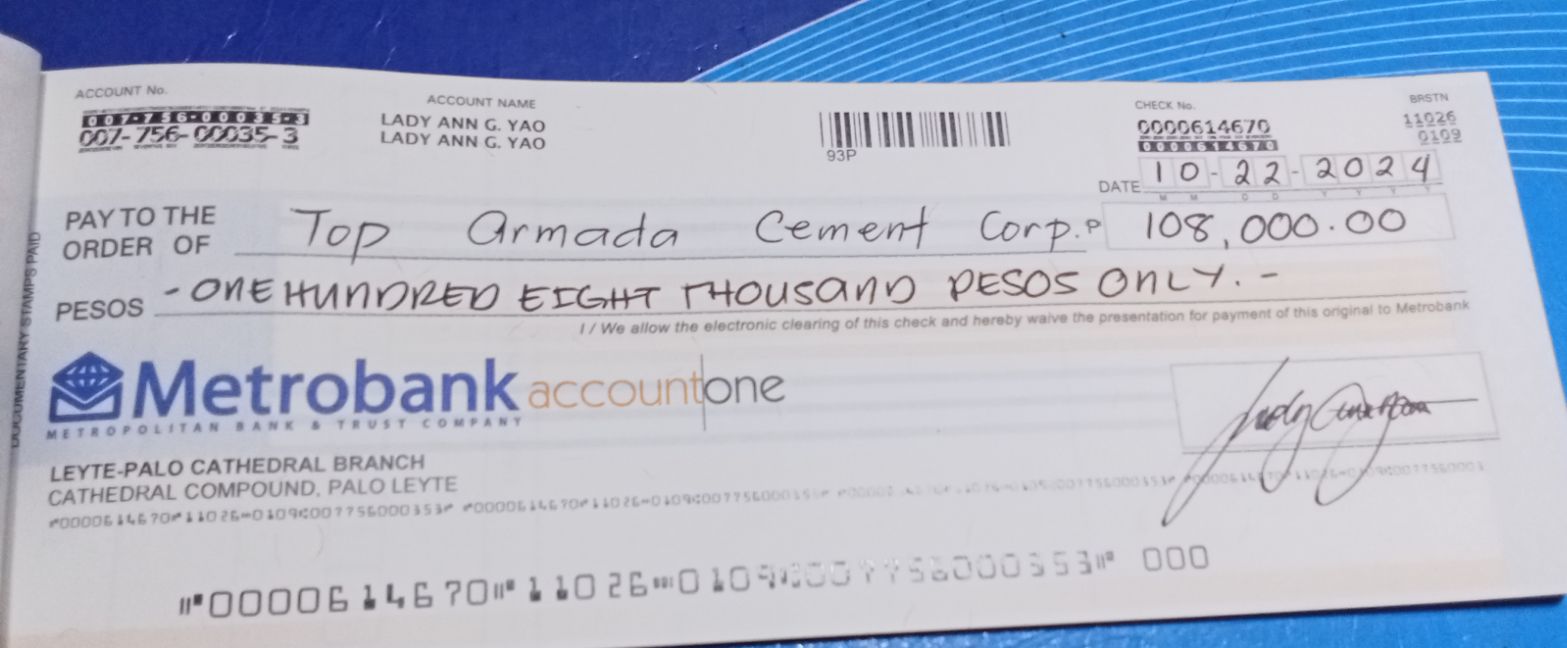 ACCOUNT No.
007-756-00035-3
007-756-00035-3
ACCOUNT NAME
LADY ANN G. YAO
LADY ANN G. YAO
93P
CHECK No.
0000614670
0000614670
BRSTN
11026
0109
DATE 10-22-2024
M M D D Y Y Y Y
PAY TO THE
ORDER OF Top Armada Cement Corp. P 108,000.00
PESOS - ONE HUNDRED EIGHT THOUSAND PESOS ONLY. -
I / We allow the electronic clearing of this check and hereby waive the presentation for payment of this original to Metrobank
DOCUMENTARY STAMPS PAID
Metrobank accountone
METROPOLITAN BANK & TRUST COMPANY
LEYTE-PALO CATHEDRAL BRANCH
CATHEDRAL COMPOUND, PALO LEYTE
⑈0000614670⑈11026⑉0109⑆007756000353⑈
⑈0000614670⑈11026⑉0109⑆007756000353⑈ 000